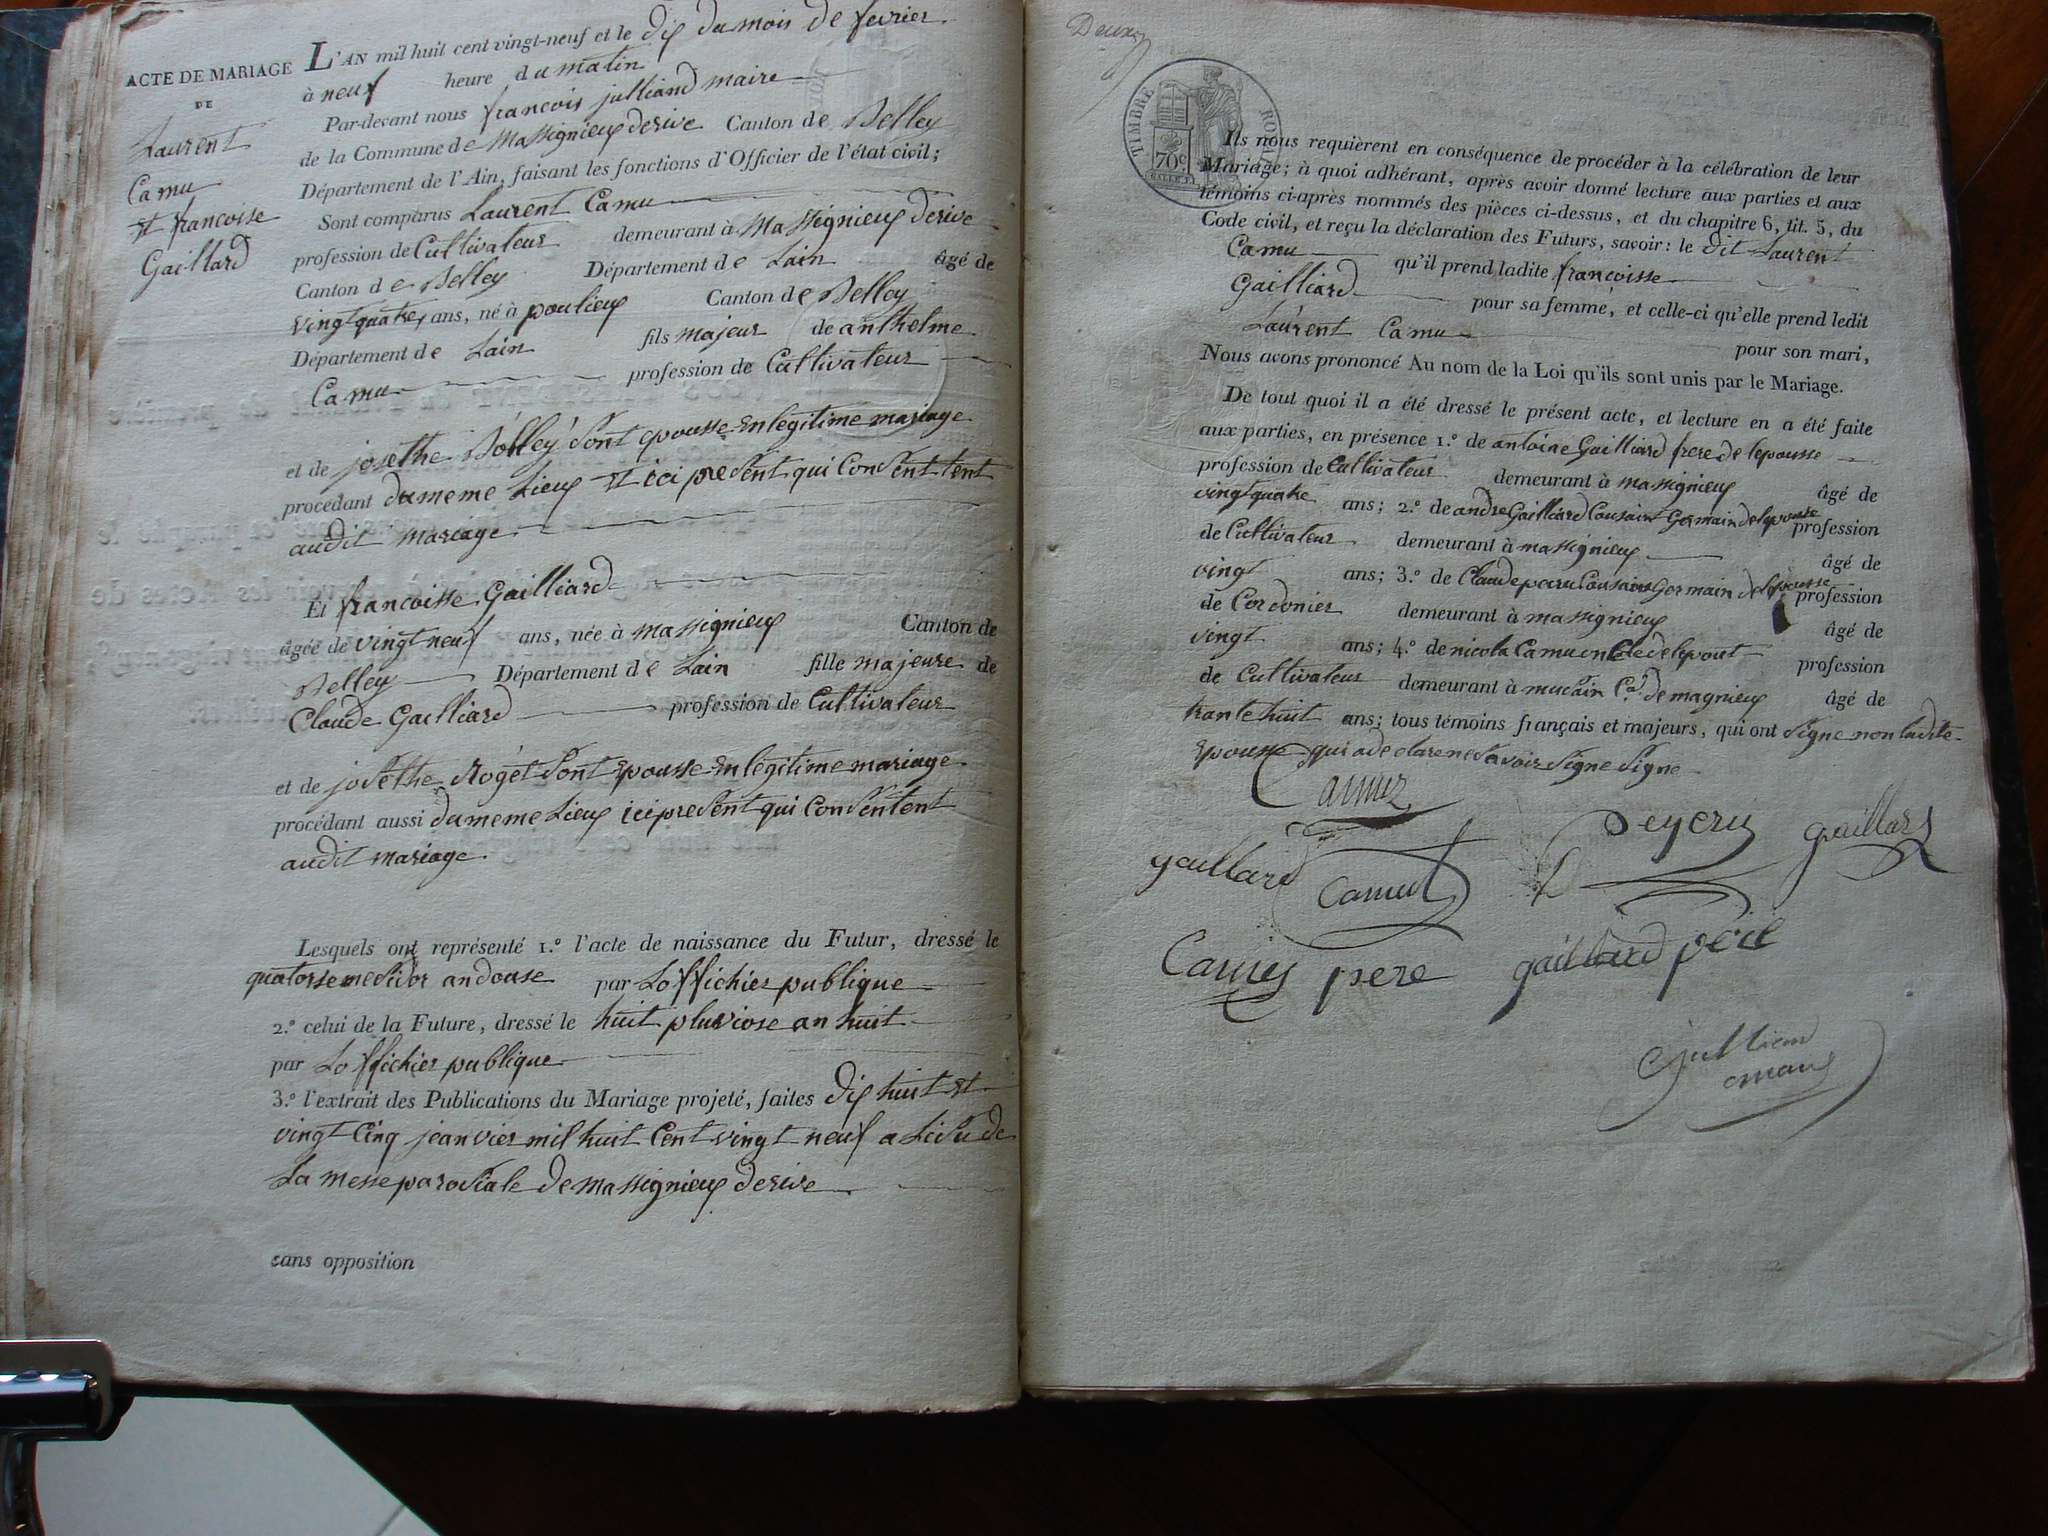 ACTE DE MARIAGE
DE
Laurent
Camu
et francoise
Gaillard
L'AN mil huit cent vingt-neuf et le dix du mois de fevrier
à neuf heure du matin
Par-devant nous francois julliand maire
de la Commune de Massignieux derive Canton de Belley
Département de l'Ain, faisant les fonctions d'Officier de l'état civil;
Sont comparus Laurent Camu
profession de Cultivateur demeurant à Massignieux derive
Canton de Belley Département de Lain âgé de
vingt quatre ans, né à poulieux Canton de Belley
Département de Lain fils majeur de anthelme
Camu profession de Cultivateur
et de josethe Bolley sont epousse en legitime mariage
procédant du meme Lieux et ici present qui Consent tent
audit mariage
Et francoisse Gailliard
âgée de vingt neuf ans, née à massignieux Canton de
Belley Département de Lain fille majeure de
Claude Gailliard profession de Cultivateur
et de josethe Roget sont epousse en legitime mariage
procédant aussi du meme Lieux ici present qui Consentent
audit mariage.
Lesquels ont représenté 1.º l'acte de naissance du Futur, dressé le
quatorse mesidor an douse par Loffichier publique
2.º celui de la Future, dressé le huit pluviose an huit
par Loffichier publique
3.º l'extrait des Publications du Mariage projeté, faites dix huit et
vingt Cinq jeanvier mil huit Cent vingt neuf a Lisu de
La messe parosiale de Massignieux derive
sans opposition
TIMBRE ROYAL
70c
Ils nous requièrent en conséquence de procéder à la célébration de leur
Mariage; à quoi adhérant, après avoir donné lecture aux parties et aux
témoins ci-après nommés des pièces ci-dessus, et du chapitre 6, tit. 5, du
Code civil, et reçu la déclaration des Futurs, savoir: le dit Laurent
Camu qu'il prend ladite francoisse
Gailliard pour sa femme, et celle-ci qu'elle prend ledit
Laurent Camu pour son mari,
Nous avons prononcé Au nom de la Loi qu'ils sont unis par le Mariage.
De tout quoi il a été dressé le présent acte, et lecture en a été faite
aux parties, en présence 1.º de antoine Gailliard frere de lepousse
profession de Cultivateur demeurant à massignieux âgé de
vingt quatre ans; 2.º de andre Gailliard Cousaint Germain de lepousse profession
de Cultivateur demeurant à massignieux âgé de
vingt ans; 3.º de Claude Cousaint Germain de lepousse profession
de Cordonier demeurant à massignieux âgé de
vingt ans; 4.º de nicola Camu oncle de lepout profession
de Cultivateur demeurant à de magnieux âgé de
trante huit ans; tous témoins français et majeurs, qui ont signe non ladite
epousse qui a de clare ne savoir signe signe
Camuz
gaillard Camut gaillard
Camus pere gaillard père
Jullien